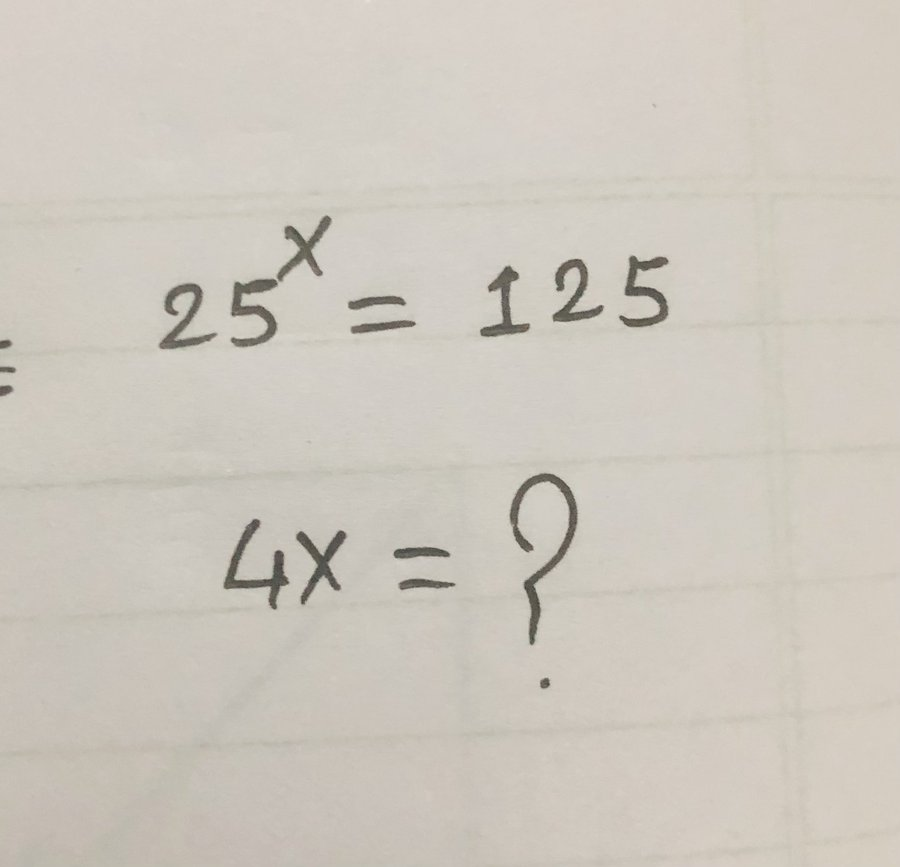 25ˣ = 125
4x = ?